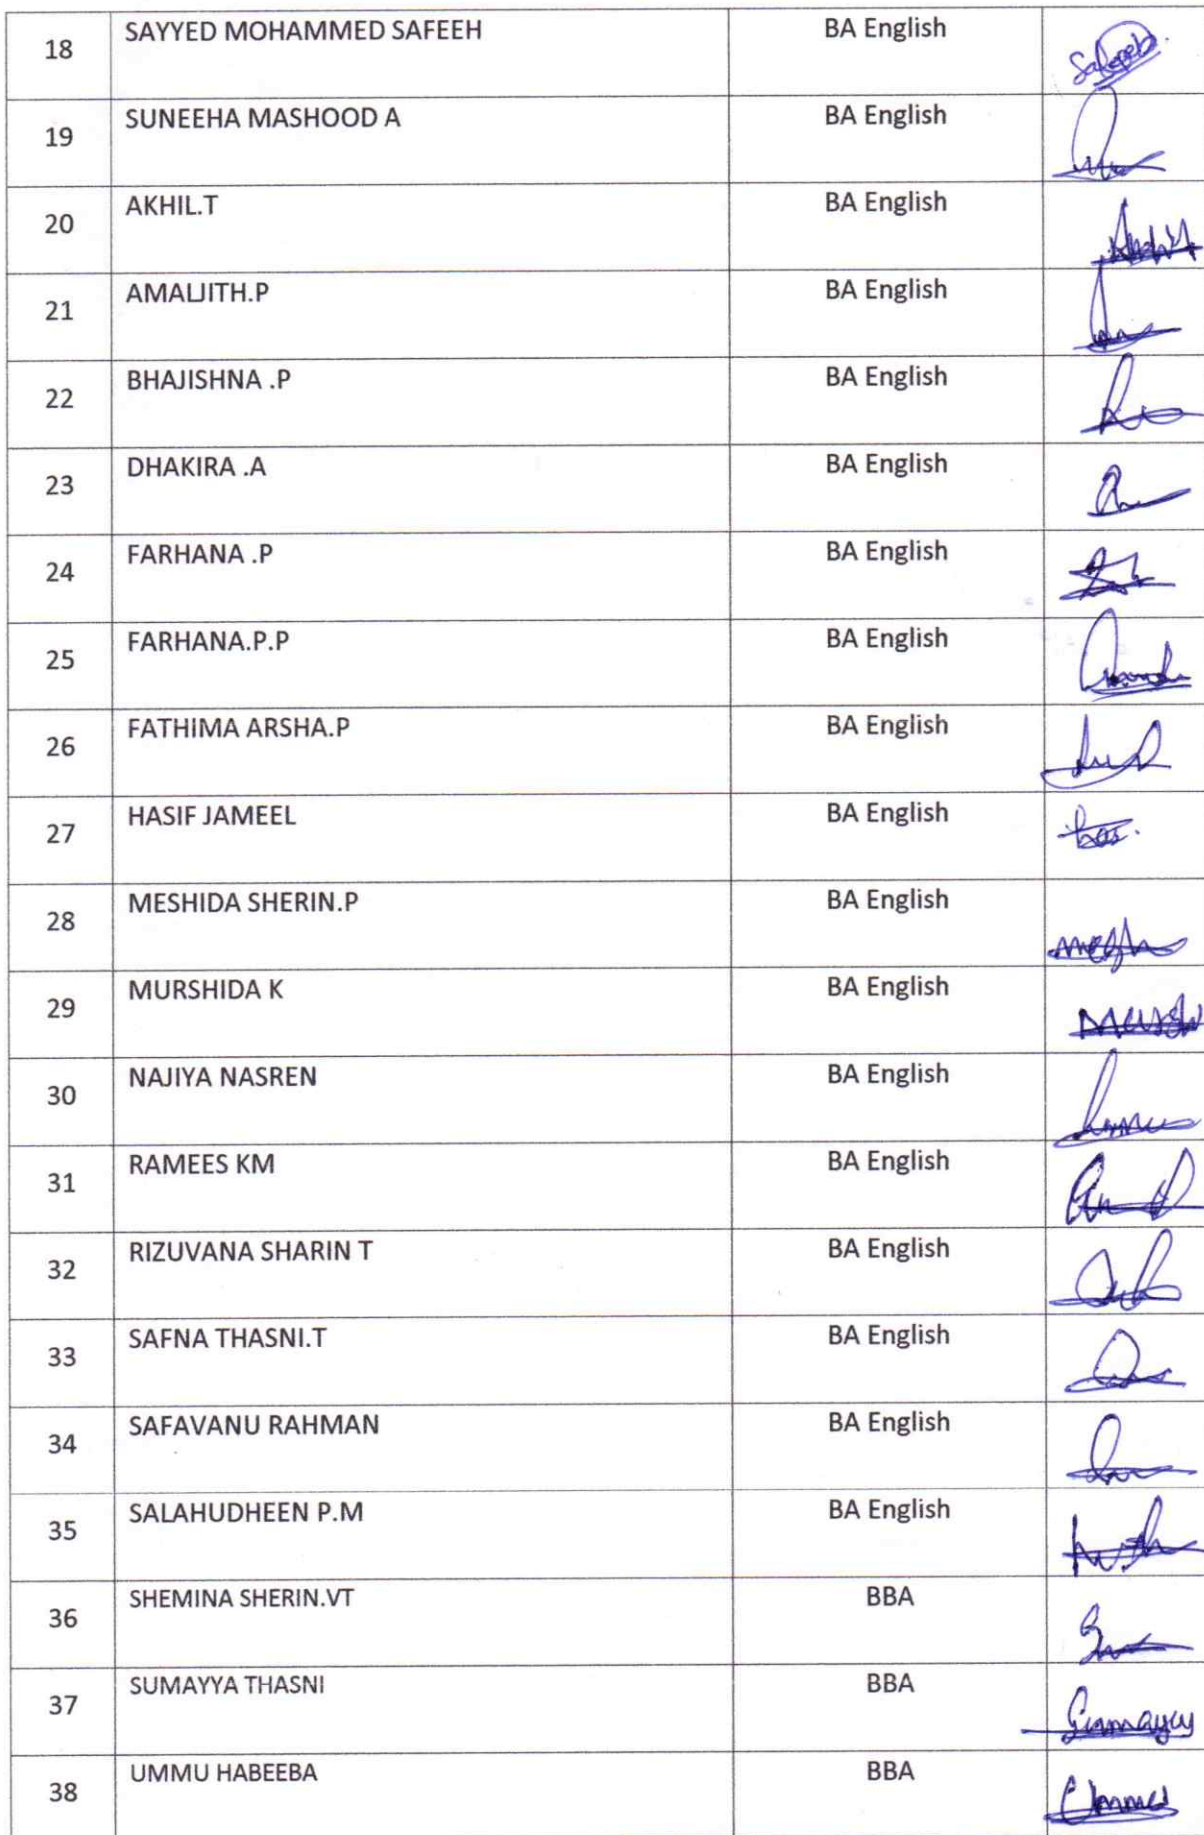 18 SAYYED MOHAMMED SAFEEH BA English
19 SUNEEHA MASHOOD A BA English
20 AKHIL.T BA English
21 AMALJITH.P BA English
22 BHAJISHNA .P BA English
23 DHAKIRA .A BA English
24 FARHANA .P BA English
25 FARHANA.P.P BA English
26 FATHIMA ARSHA.P BA English
27 HASIF JAMEEL BA English
28 MESHIDA SHERIN.P BA English
29 MURSHIDA K BA English
30 NAJIYA NASREN BA English
31 RAMEES KM BA English
32 RIZUVANA SHARIN T BA English
33 SAFNA THASNI.T BA English
34 SAFAVANU RAHMAN BA English
35 SALAHUDHEEN P.M BA English
36 SHEMINA SHERIN.VT BBA
37 SUMAYYA THASNI BBA
38 UMMU HABEEBA BBA